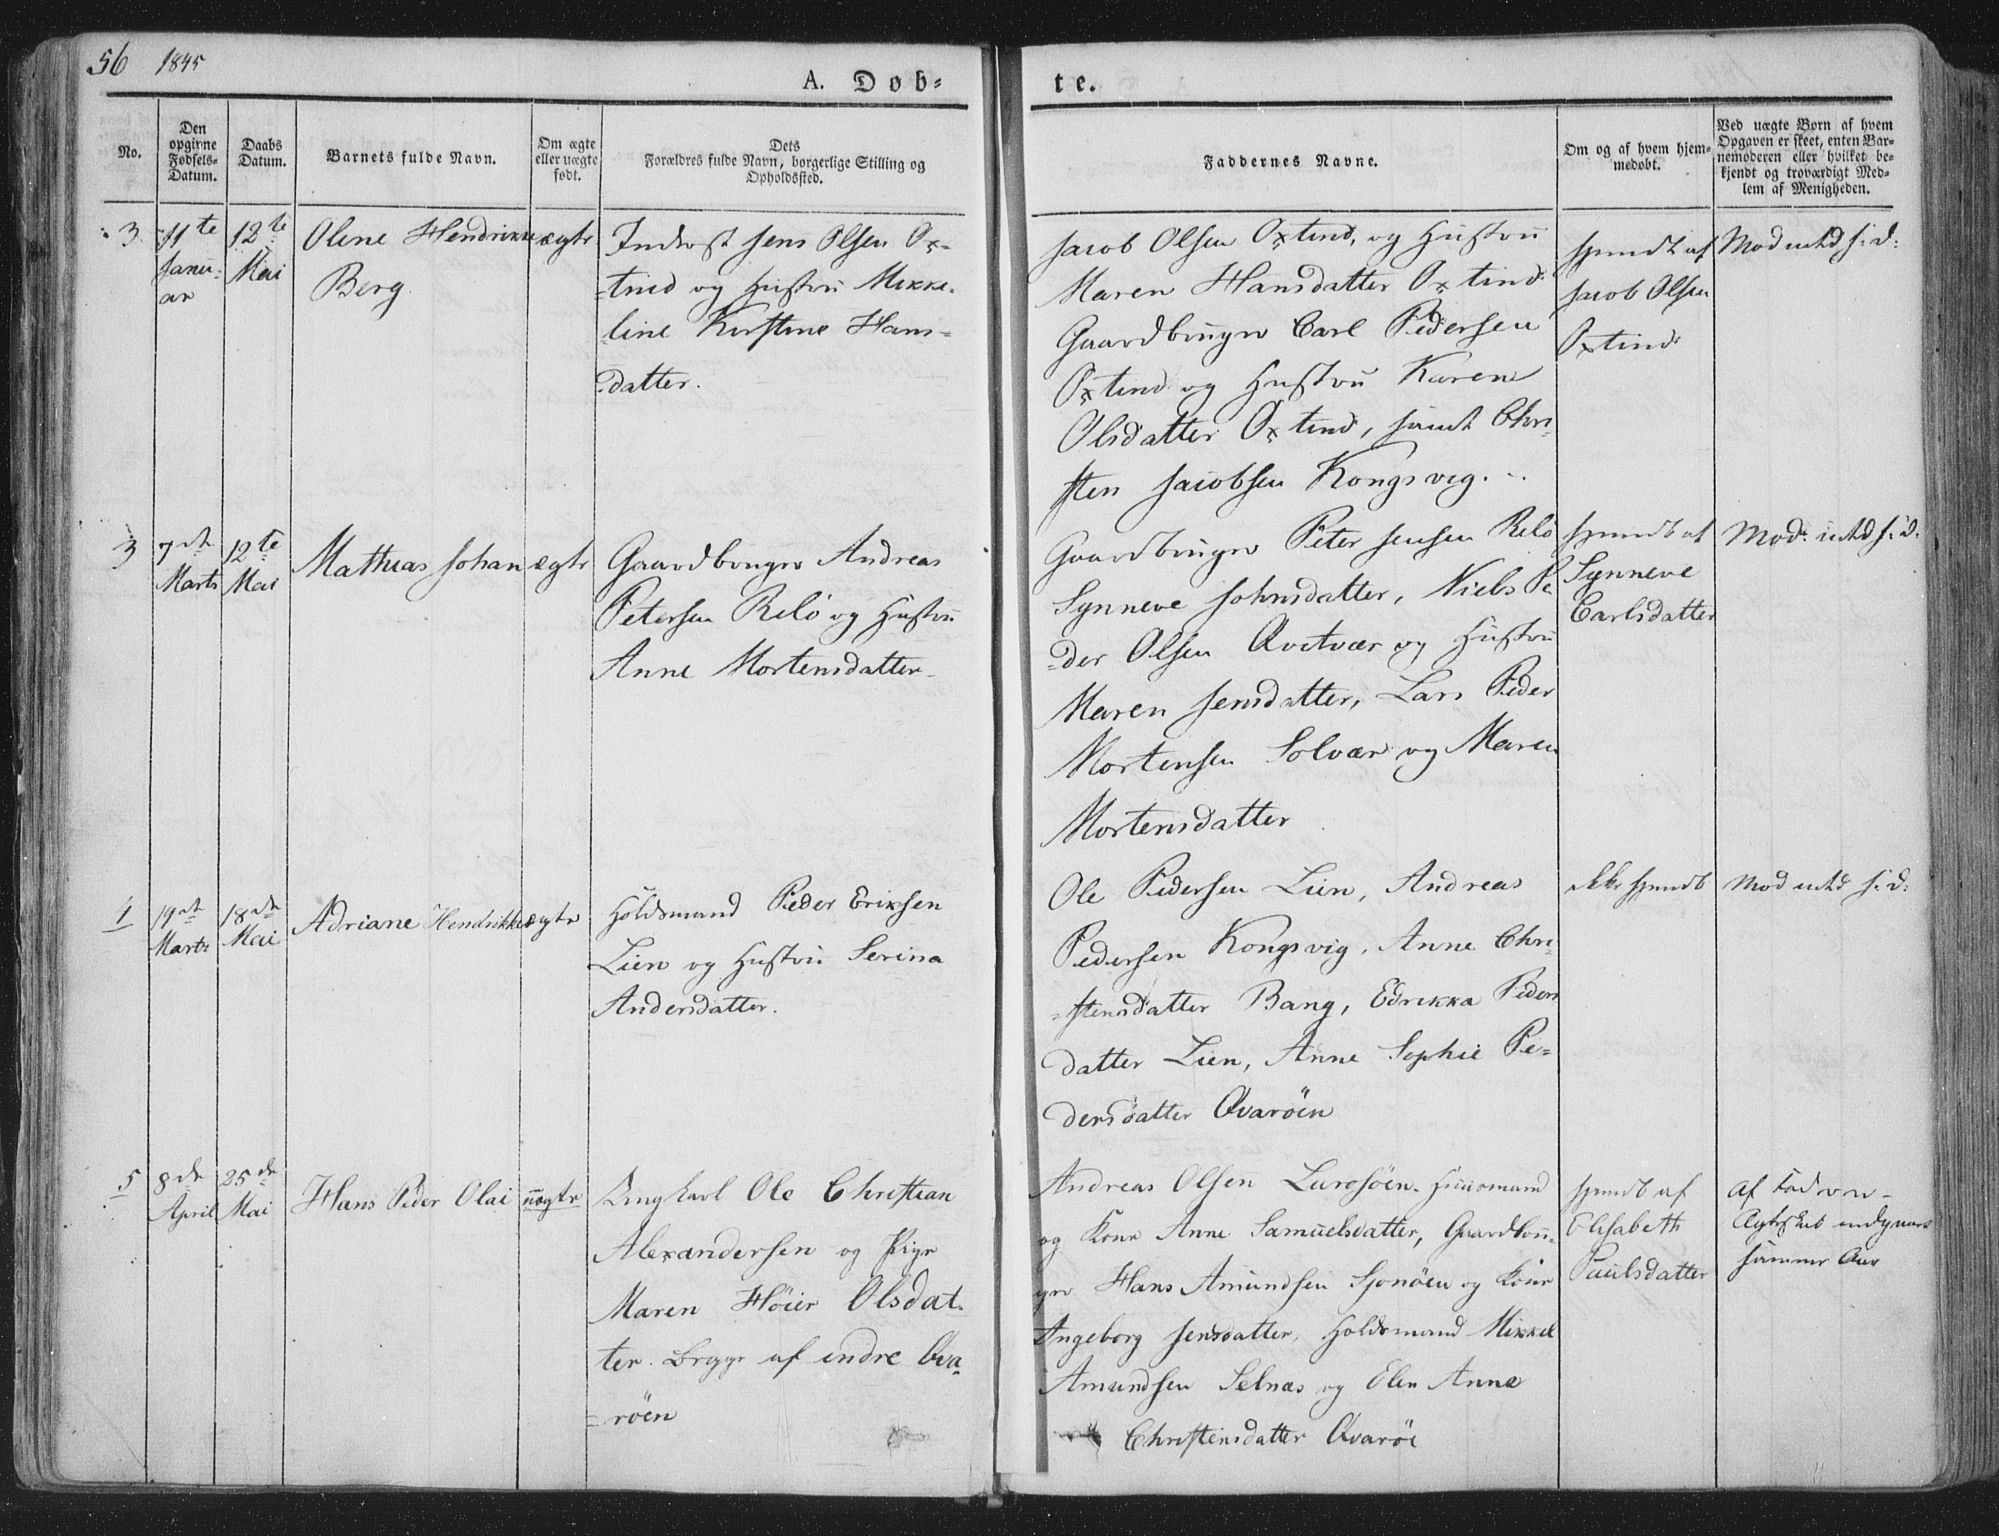 56 1845
A. Døb-
te.
No.
Den
opgivne
Fødsels-
Datum.
Daabs
Datum.
Barnets fulde Navn.
Om ægte
eller uægte
født.
Dets
Forældres fulde Navn, borgerlige Stilling og
Opholdssted.
Faddernes Navne.
Om og af hvem hjem-
medøbt.
Ved uægte Børn af hvem
Opgaven er skeet, enten Bar-
nemoderen eller hvilket be-
kjendt og troværdigt Med-
lem af Menigheden.
3
11te
Janu-
ar
12te
Mai
Olene Hendrikke
Berg
ægte
Inderst Jens Olsen Ox-
tind og Hustru Mikke-
line Kirstine Hans-
datter.
Jacob Olsen Oxtind, og Hustru
Maren Hansdatter Oxtind
Gaardbruger Carl Pedersen
Oxtind og Hustru Karen
Olsdatter Oxtind, samt Chri-
sten Jacobsen Kongsvig.
Jacob Olsen
Oxtind
3
7de
Marts
12te
Mai
Mathias Johan
ægte
Gaardbruger Andreas
Petersen Relø og Hustru
Anne Mortensdatter
Gaardbruger Peter Jensen Relø
Synneve Johnsdatter, Niels Pe
der Olsen Qvitvær og Hustru
Maren Jensdatter, Lars Peder
Mortensen Solvær og Maren
Mortensdatter
Synneve
Carlsdatter
4
19de
Marts
18de
Mai
Adriane Hendrikke
ægte
Holdsmand Peder Eriksen
Lien og Hustru Serina
Andersdatter.
Ole Pedersen Lien, Andreas
Pedersen Kongsvig, Anne Chri-
stensdatter Bang, Edrikka Peders
datter Lien, Anne Sophie Pe-
dersdatter Qvarøen
5
8de
April
25de
Mai
Hans Peder Olai
uægte
Ungkarl Ole Christian
Alexandersen og Pige
Maren Høier Olsdat-
ter. Begge af indre Qva-
røen
Andreas Olsen Lurosøen. Huusmand
og Kone Anne Samuelsdatter, Gaardbru-
ger Hans Amundsen Sjonøen og Kone
Ingeborg Jensdatter, Holdsmand Mikkel
Amundsen Selnæs og Elen Anna
Christensdatter Qvarøe
Elisabeth
Paulsdatter